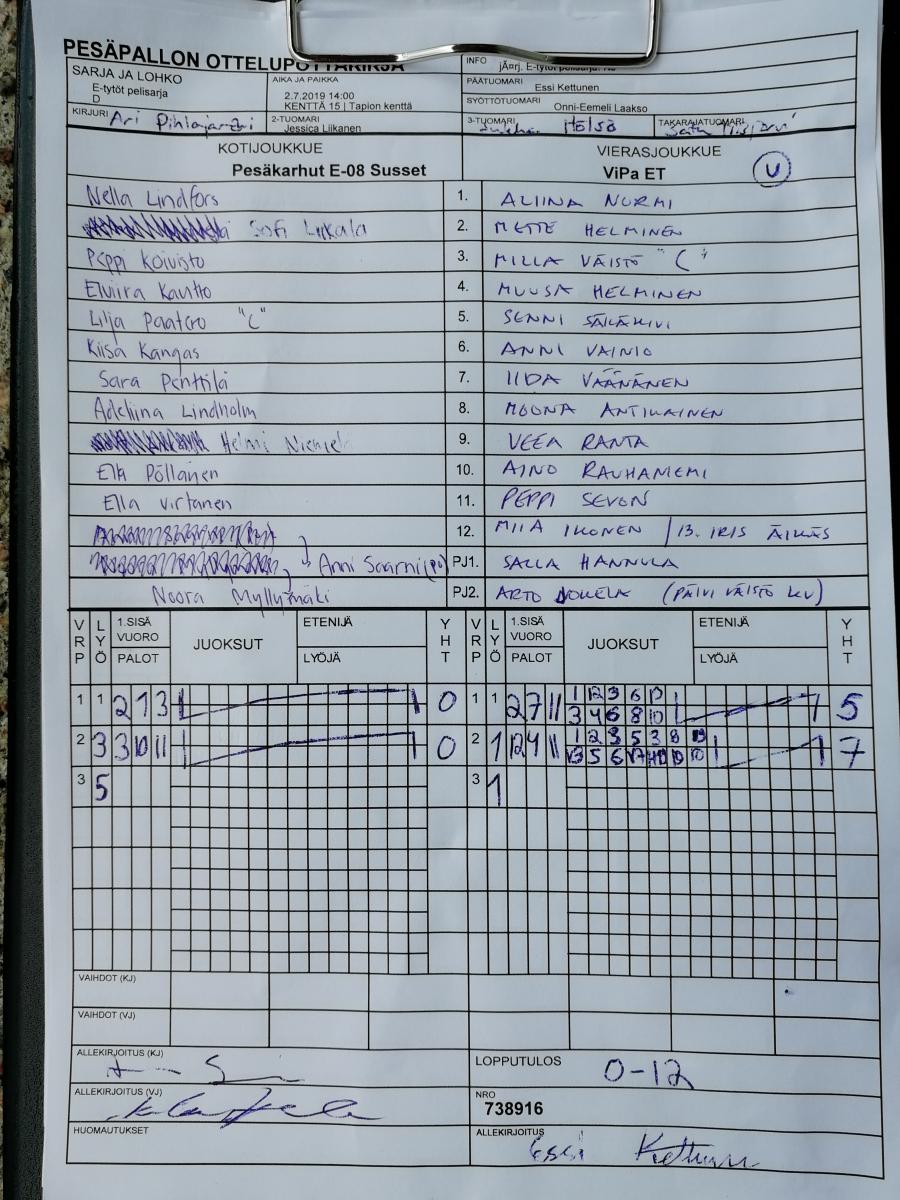 PESÄPALLON OTTELUPÖYTÄKIRJA
SARJA JA LOHKO
E-tytöt pelisarja
D
AIKA JA PAIKKA
2.7.2019 14:00
KENTTÄ 15 | Tapion kenttä
INFO
E-tytöt pelisarja:
PÄÄTUOMARI
Essi Kettunen
SYÖTTÖTUOMARI
Onni-Eemeli Laakso
KIRJURI Ari Pihlajamäki
2-TUOMARI
Jessica Liikanen
3-TUOMARI
TAKARAJATUOMARI
KOTIJOUKKUE
Pesäkarhut E-08 Susset
VIERASJOUKKUE
ViPa ET U
Nella Lindfors 1. ALIINA NURMI
Sofi Liikala 2. METTE HELMINEN
Peppi Koivisto 3. MILLA VÄISTÖ "C"
Elviira Kautto 4. MUUSA HELMINEN
Lilja Paatero "C" 5. SENNI SÄILÄKIVI
Kiisa Kangas 6. ANNI VAINIO
Sara Penttilä 7. IIDA VÄÄNÄNEN
Adeliina Lindholm 8. MOONA ANTIKAINEN
Helmi 9. VEEA RANTA
Ella Pöllänen 10. AINO RAUHANIEMI
Ella Virtanen 11. PEPPI SEVON
12. MIIA IKONEN / 13. IRIS ÄIKÄS
Anni Saarni (PJ) PJ1. SALLA HANNULA
Noora Myllymäki PJ2. ARTO (PÄIVI VÄISTÖ LV)
VRP LYÖ 1.SISÄ VUORO PALOT JUOKSUT ETENIJÄ LYÖJÄ YHT VRP LYÖ 1.SISÄ VUORO PALOT JUOKSUT ETENIJÄ LYÖJÄ YHT
1 1 2 7 3 0 1 1 2 7 11 1 12 3 6 10 5
3 4 6 8 10
2 3 3 10 11 0 2 1 12 4 11 1 2 3 5 3 8 7
3 5 3 1
VAIHDOT (KJ)
VAIHDOT (VJ)
ALLEKIRJOITUS (KJ)
LOPPUTULOS 0-12
ALLEKIRJOITUS (VJ)
NRO
738916
HUOMAUTUKSET
ALLEKIRJOITUS
Essi Kettunen